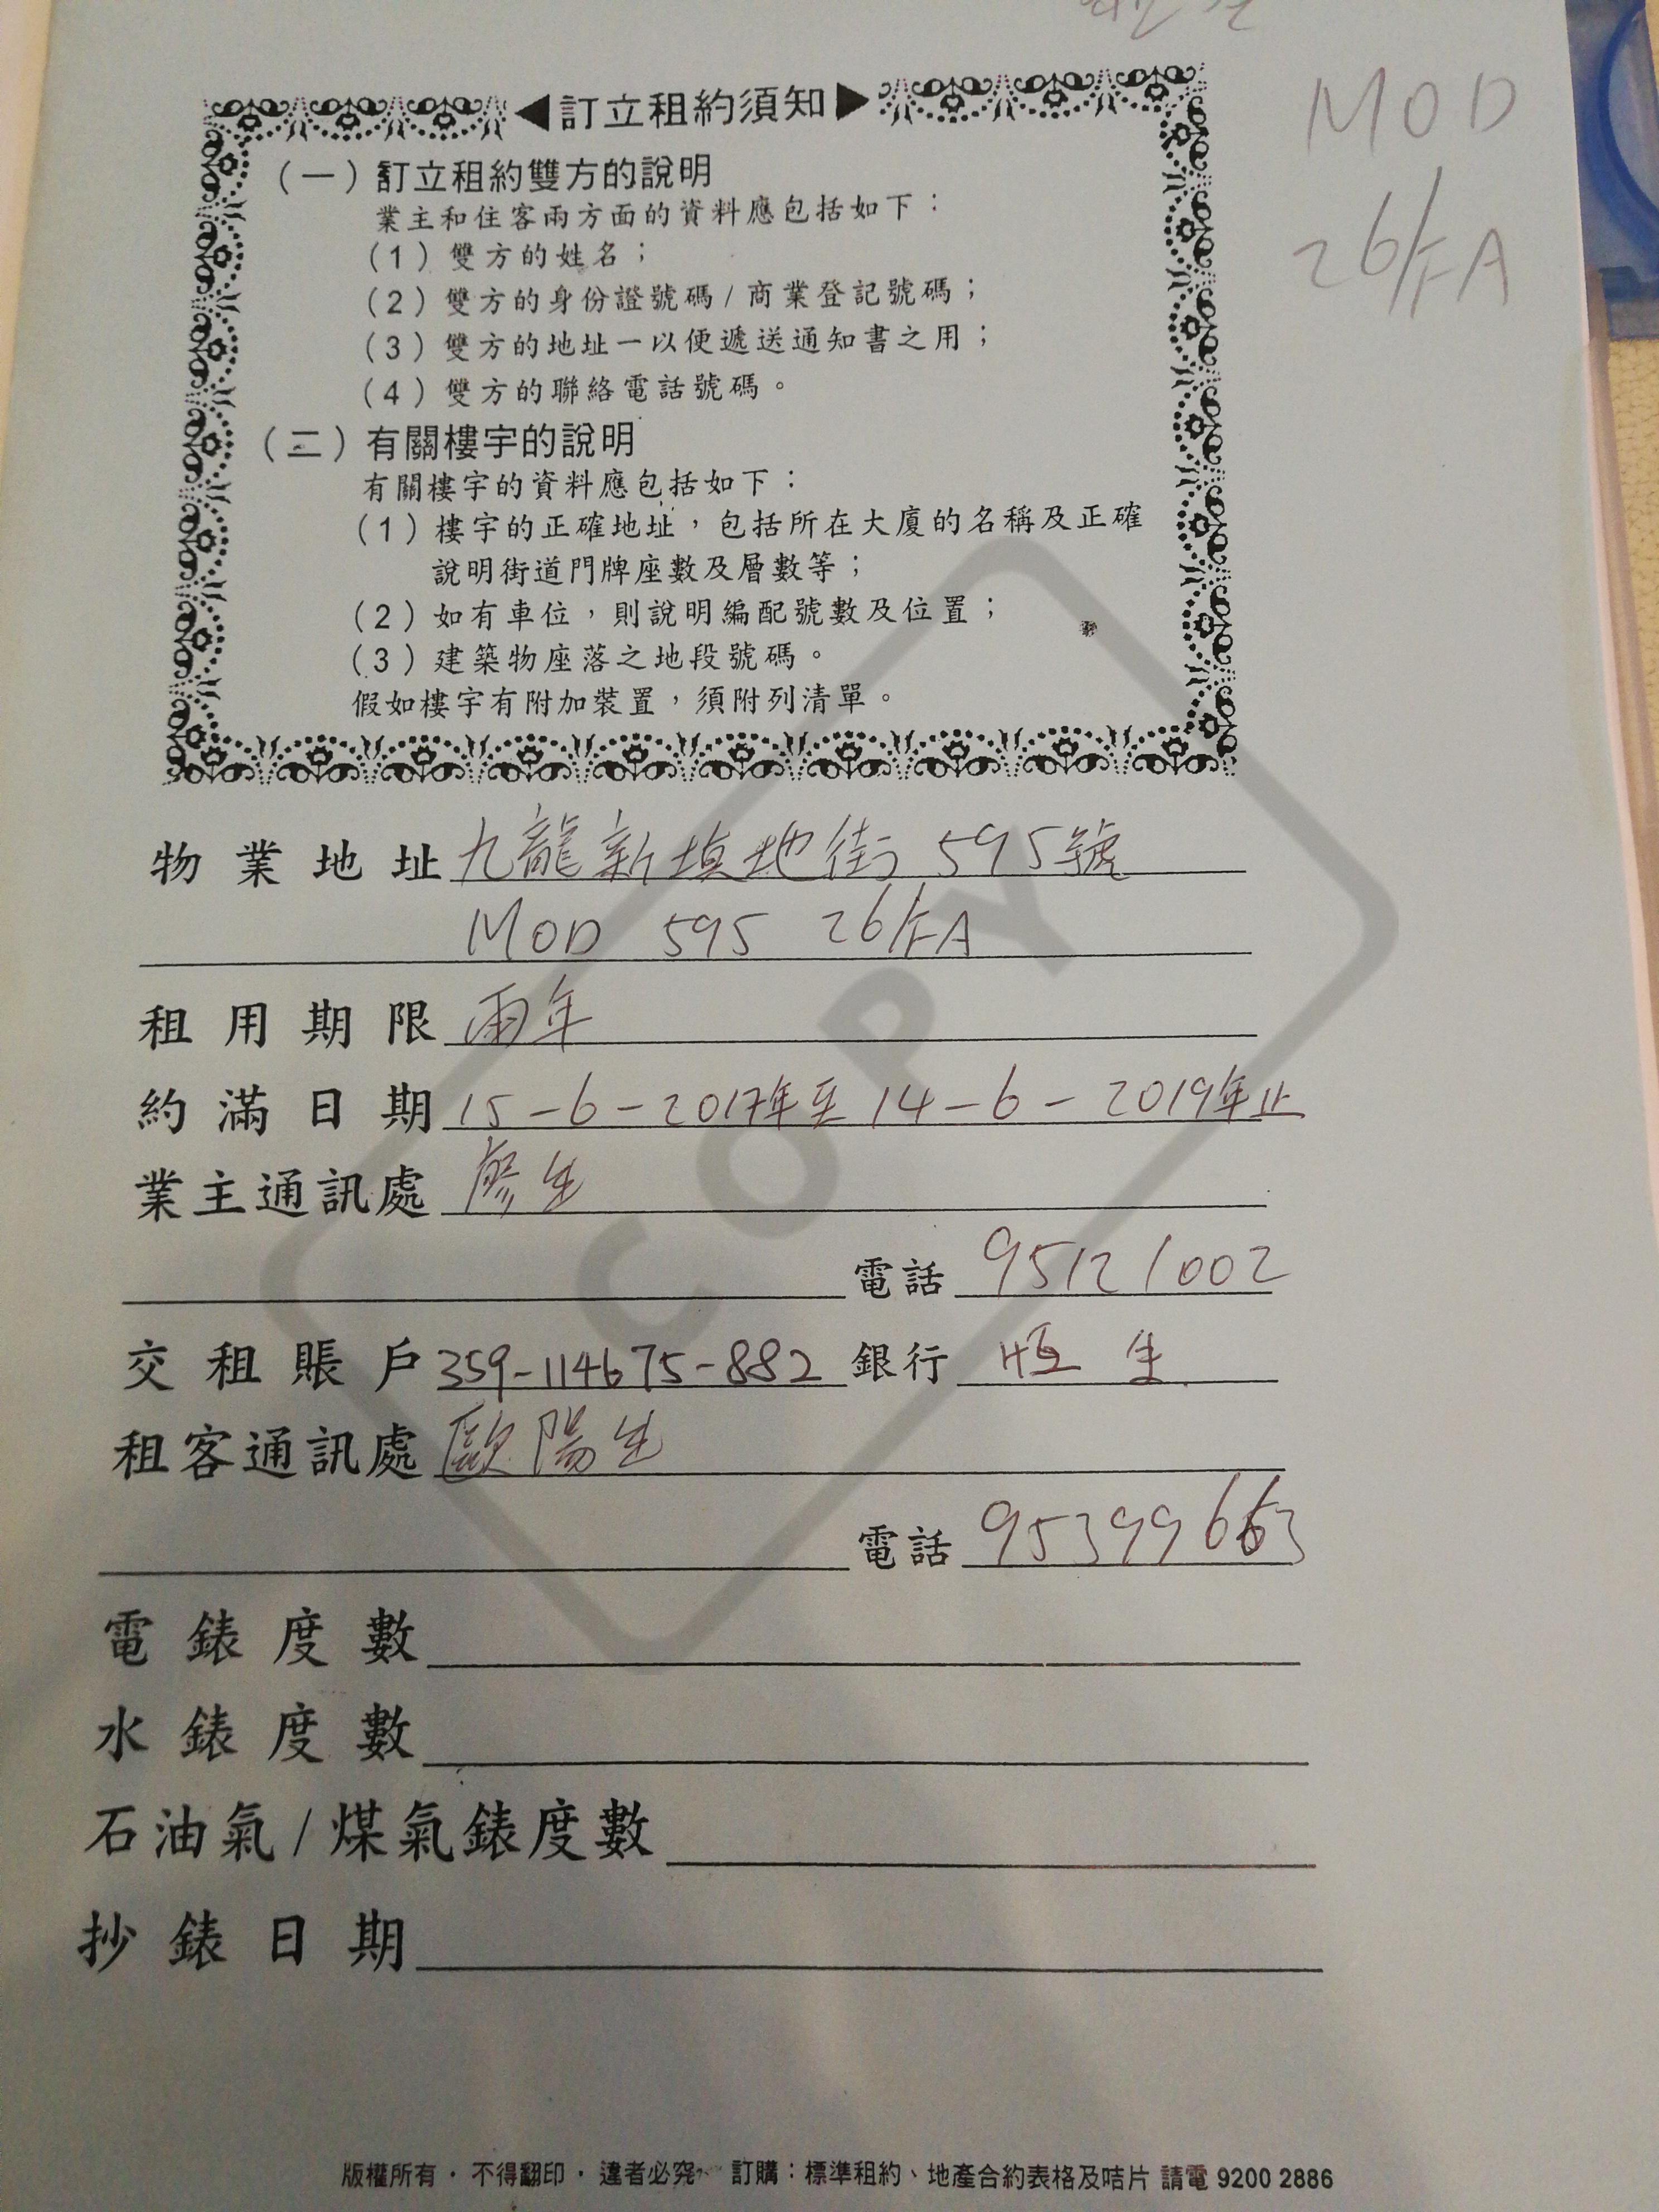 MOD
26/FA
◀訂立租約須知▶
(一)訂立租約雙方的說明
業主和住客兩方面的資料應包括如下：
(1)雙方的姓名；
(2)雙方的身份證號碼/商業登記號碼；
(3)雙方的地址一以便遞送通知書之用；
(4)雙方的聯絡電話號碼。
(二)有關樓宇的說明
有關樓宇的資料應包括如下：
(1)樓宇的正確地址，包括所在大廈的名稱及正確
說明街道門牌座數及層數等；
(2)如有車位，則說明編配號數及位置；
(3)建築物座落之地段號碼。
假如樓宇有附加裝置，須附列清單。
物業地址 九龍新填地街 595號
MOD 595 26/FA
租用期限 兩年
約滿日期 15-6-2017年至14-6-2019年止
業主通訊處 廖生
電話 95121002
交租賬戶 359-114675-882 銀行 恒生
租客通訊處 歐陽生
電話 95399663
電錶度數
水錶度數
石油氣/煤氣錶度數
抄錶日期
COPY
版權所有・不得翻印・違者必究 訂購：標準租約、地產合約表格及咭片 請電 9200 2886